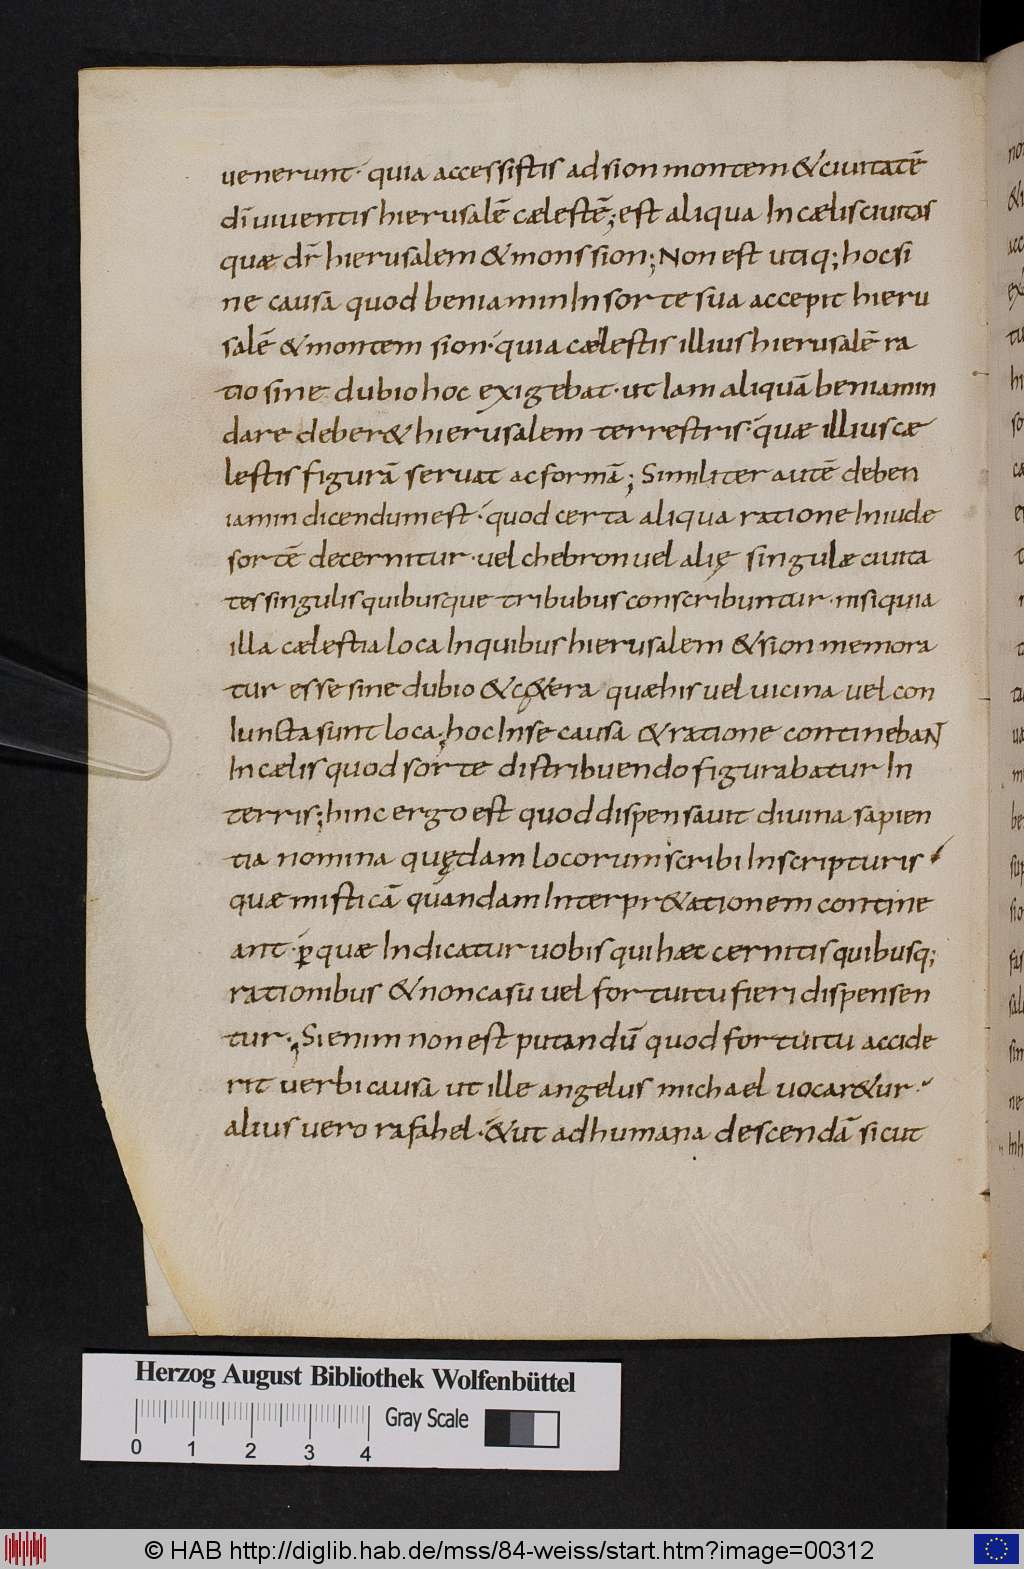 uenerunt· quia accessistis ad sion montem & ciuitatē
dī uiuentis hierusalē cælestē; est aliqua In cælis ciuitas
quæ dr̄ hierusalem & mons sion; Non est utiq; hoc si
ne causa quod beniamin In sorte sua accepit hieru
salē & montem sion· quia cælestis illius hierusalē ra
tio sine dubio hoc exigebat· ut Iam aliquā beniamin
dare deber& hierusalem terrestris· quæ illius cæ
lestis figurā seruat ac formā; Similiter autē de ben
iamin dicendum est· quod certa aliqua ratione In iude
sortē decernitur· uel chebron uel alię singulæ ciuita
tes singulis quibusque tribubus conscribuntur· nisi quia
illa cælestia loca In quibus hierusalem & sion memora
tur esse sine dubio & c&era quæ his uel uicina uel con
Iuncta sunt loca; hoc In se causa & ratione contineban̄t
In cælis quod sorte distribuendo figurabatur In
terris; hinc ergo est quod dispensauit diuina sapien
tia nomina quędam locorum scribi In scripturis
quæ misticā quandam Interpr&ationem contine
ant· ꝑ quæ Indicatur uobis qui hæc cernitis quibusq;
rationibus & non casu uel fortuitu fieri dispensen
tur; Si enim non est putandū quod fortuitu accide
rit uerbi causa ut ille angelus michael uocar&ur·
alius uero rafahel· & ut ad humana descendā sicut
Herzog August Bibliothek Wolfenbüttel
Gray Scale
0 1 2 3 4
© HAB http://diglib.hab.de/mss/84-weiss/start.htm?image=00312